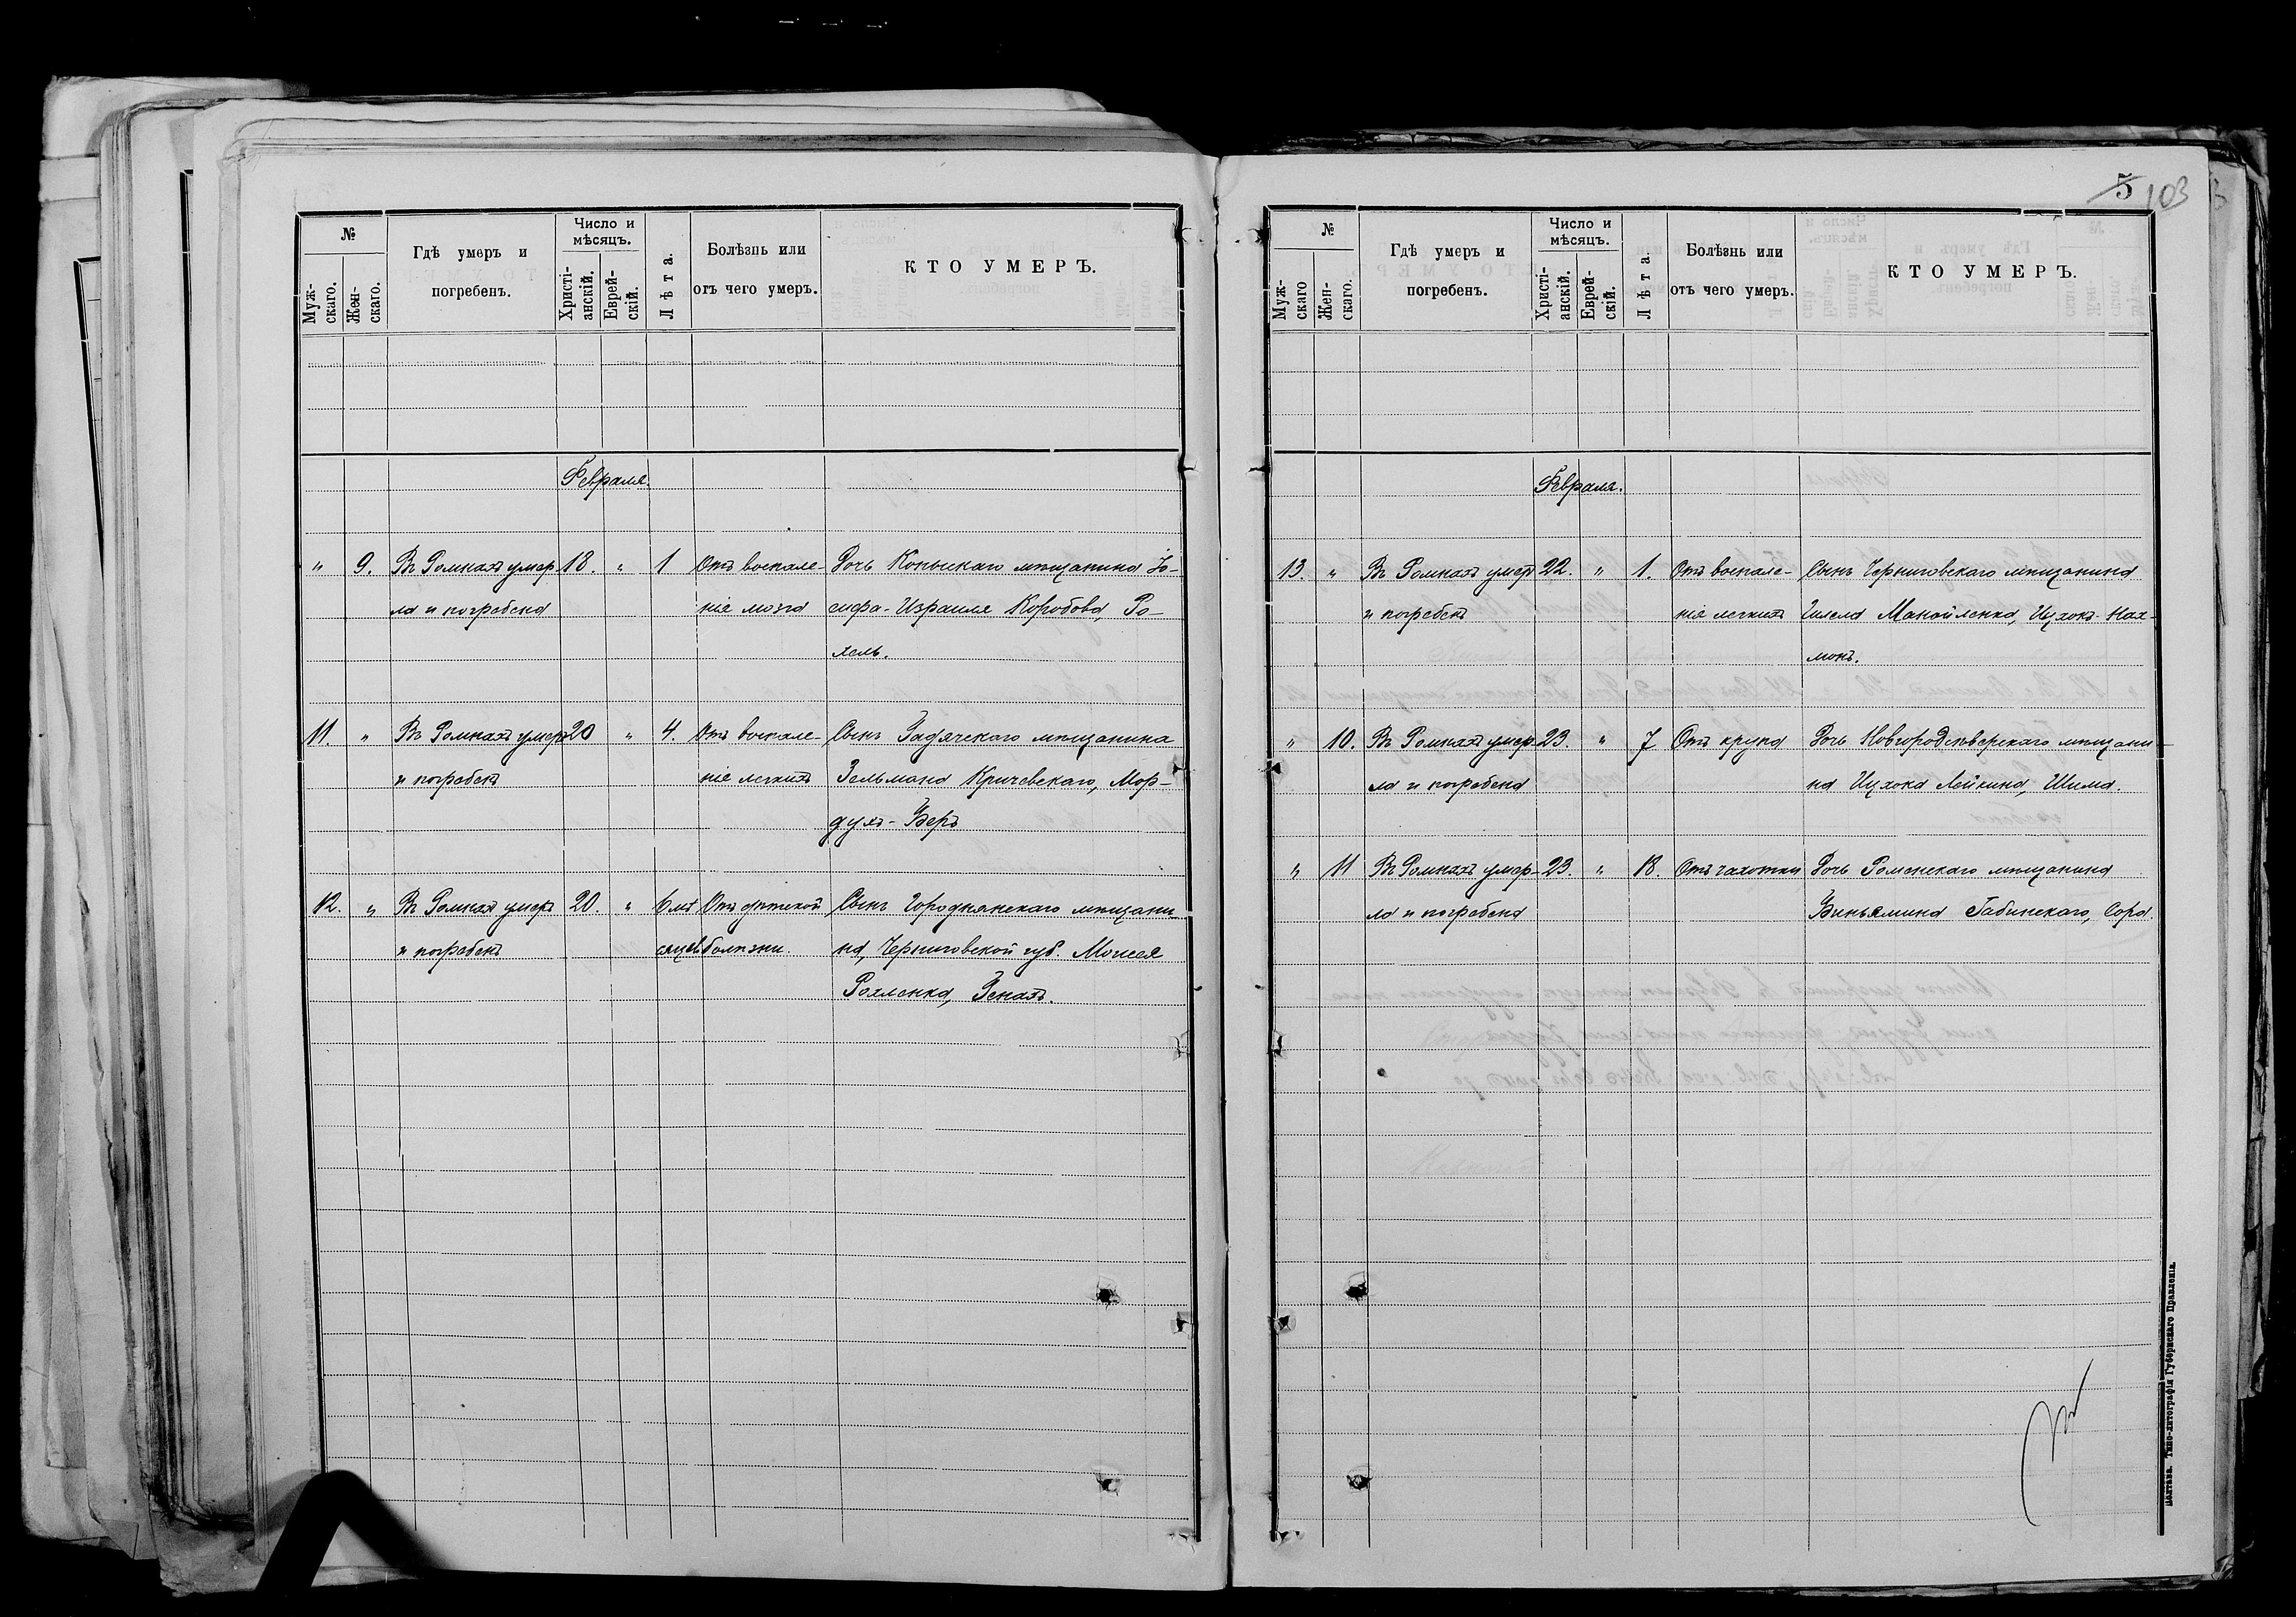 №
Муж-
скаго.
Жен-
скаго.
Гдѣ умеръ и
погребенъ.
Число и
мѣсяцъ.
Христі-
анскій.
Еврей-
скій.
Лѣта.
Болѣзнь или
отъ чего умеръ.
КТО УМЕРЪ.
Февраля.
" 9. Въ Ромнахъ умер- 18. " 1 Отъ воспале- Дочь Копыскаго мѣщанина Іо-
ла и погребена нія мозга сифа-Израиля Коробова, Ро-
хель.
11. " Въ Ромнахъ умеръ 20 " 4. Отъ воспале- Сынъ Гадячскаго мѣщанина
и погребенъ нія легкихъ Зельмана Кричевскаго, Мор-
духъ-Беръ
12. " Въ Ромнахъ умеръ 20. " 6 мѣ Отъ дѣтской Сынъ Городнянскаго мѣщани
и погребенъ сяцевъ болѣзни. на, Черниговской губ. Моисея
Рохленка, Зенахъ.
5 103
№
Муж-
скаго
Жен-
скаго.
Гдѣ умеръ и
погребенъ.
Число и
мѣсяцъ.
Христі-
анскій.
Еврей-
скій.
Лѣта.
Болѣзнь или
отъ чего умеръ.
КТО УМЕРЪ.
Февраля.
13. " Въ Ромнахъ умеръ 22. " 1. Отъ воспале- Сынъ Черниговскаго мѣщанина
и погребенъ нія легкихъ Гилела Манойленка, Ицхокъ-Нах-
монъ.
" 10. Въ Ромнахъ умер- 23. " 7 Отъ крупа Дочь Новгородсѣверскаго мѣщани-
ла и погребена на Ицхока Лейкина, Шима.
" 11 Въ Ромнахъ умер- 23. " 18. Отъ чахотки Дочь Роменскаго мѣщанина
ла и погребена Биньямина Габинскаго, Сора.
Полтава. Типо-литографія Губернскаго Правленія.